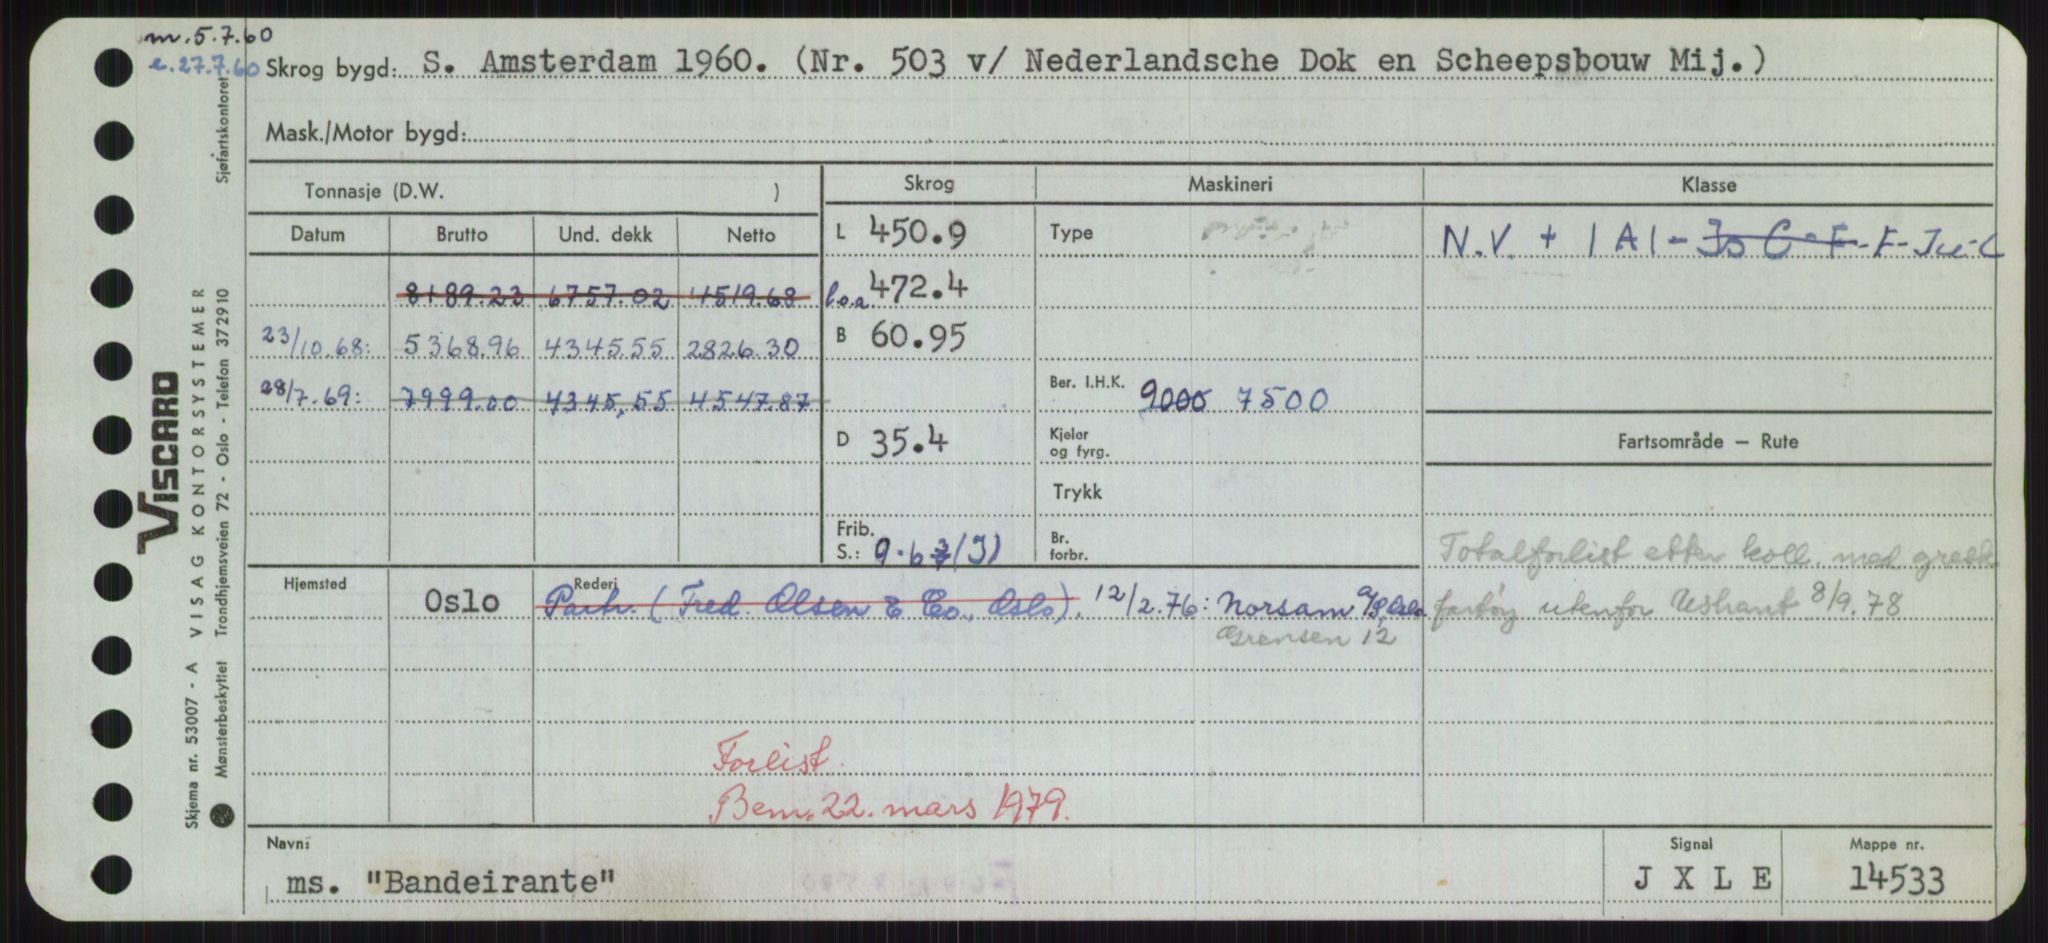 m. 5.7.60
e. 27.7.60
Skrog bygd: S. Amsterdam 1960. (Nr. 503 v/ Nederlandsche Dok en Scheepsbouw Mij.)
Mask./Motor bygd:
Tonnasje (D.W. )
Skrog Maskineri Klasse
Datum Brutto Und. dekk Netto
L 450.9
Type
N.V. + 1A1 - Is C - F - F - Ice-C
8189.23 6757.02 4519.68
l.o.a. 472.4
23/10.68: 5368.96 4345.55 2826.30
B 60.95
28/7.69: 7999.00 4345,55 4547.87
Ber. I.H.K. 9000 7500
D 35.4
Kjeler
og fyrg.
Fartsområde — Rute
Trykk
Frib.
S.: 9.6 3/4 (I)
Br.
forbr.
Totalforlist etter koll. med gresk
fartøy utenfor Ushant 8/9.78
Hjemsted
Oslo
Rederi
Partr. (Fred. Olsen & Co., Oslo). 12/2.76: Norsam A/S, Oslo
Grensen 12
Forlist.
Bem. 22. mars 1979.
Navn:
ms. "Bandeirante"
Signal
J X L E
Mappe nr.
14533
Sjøfartskontoret
VISCARO
VISAG KONTORSYSTEMER
Trondhjemsveien 72 - Oslo - Telefon 372910
Skjema nr. 53007 - A
Mønsterbeskyttet